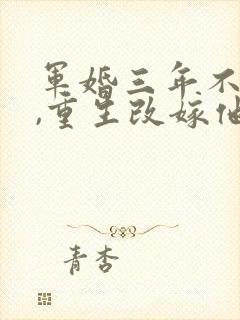 军婚三年不
,重生改嫁他
青杏